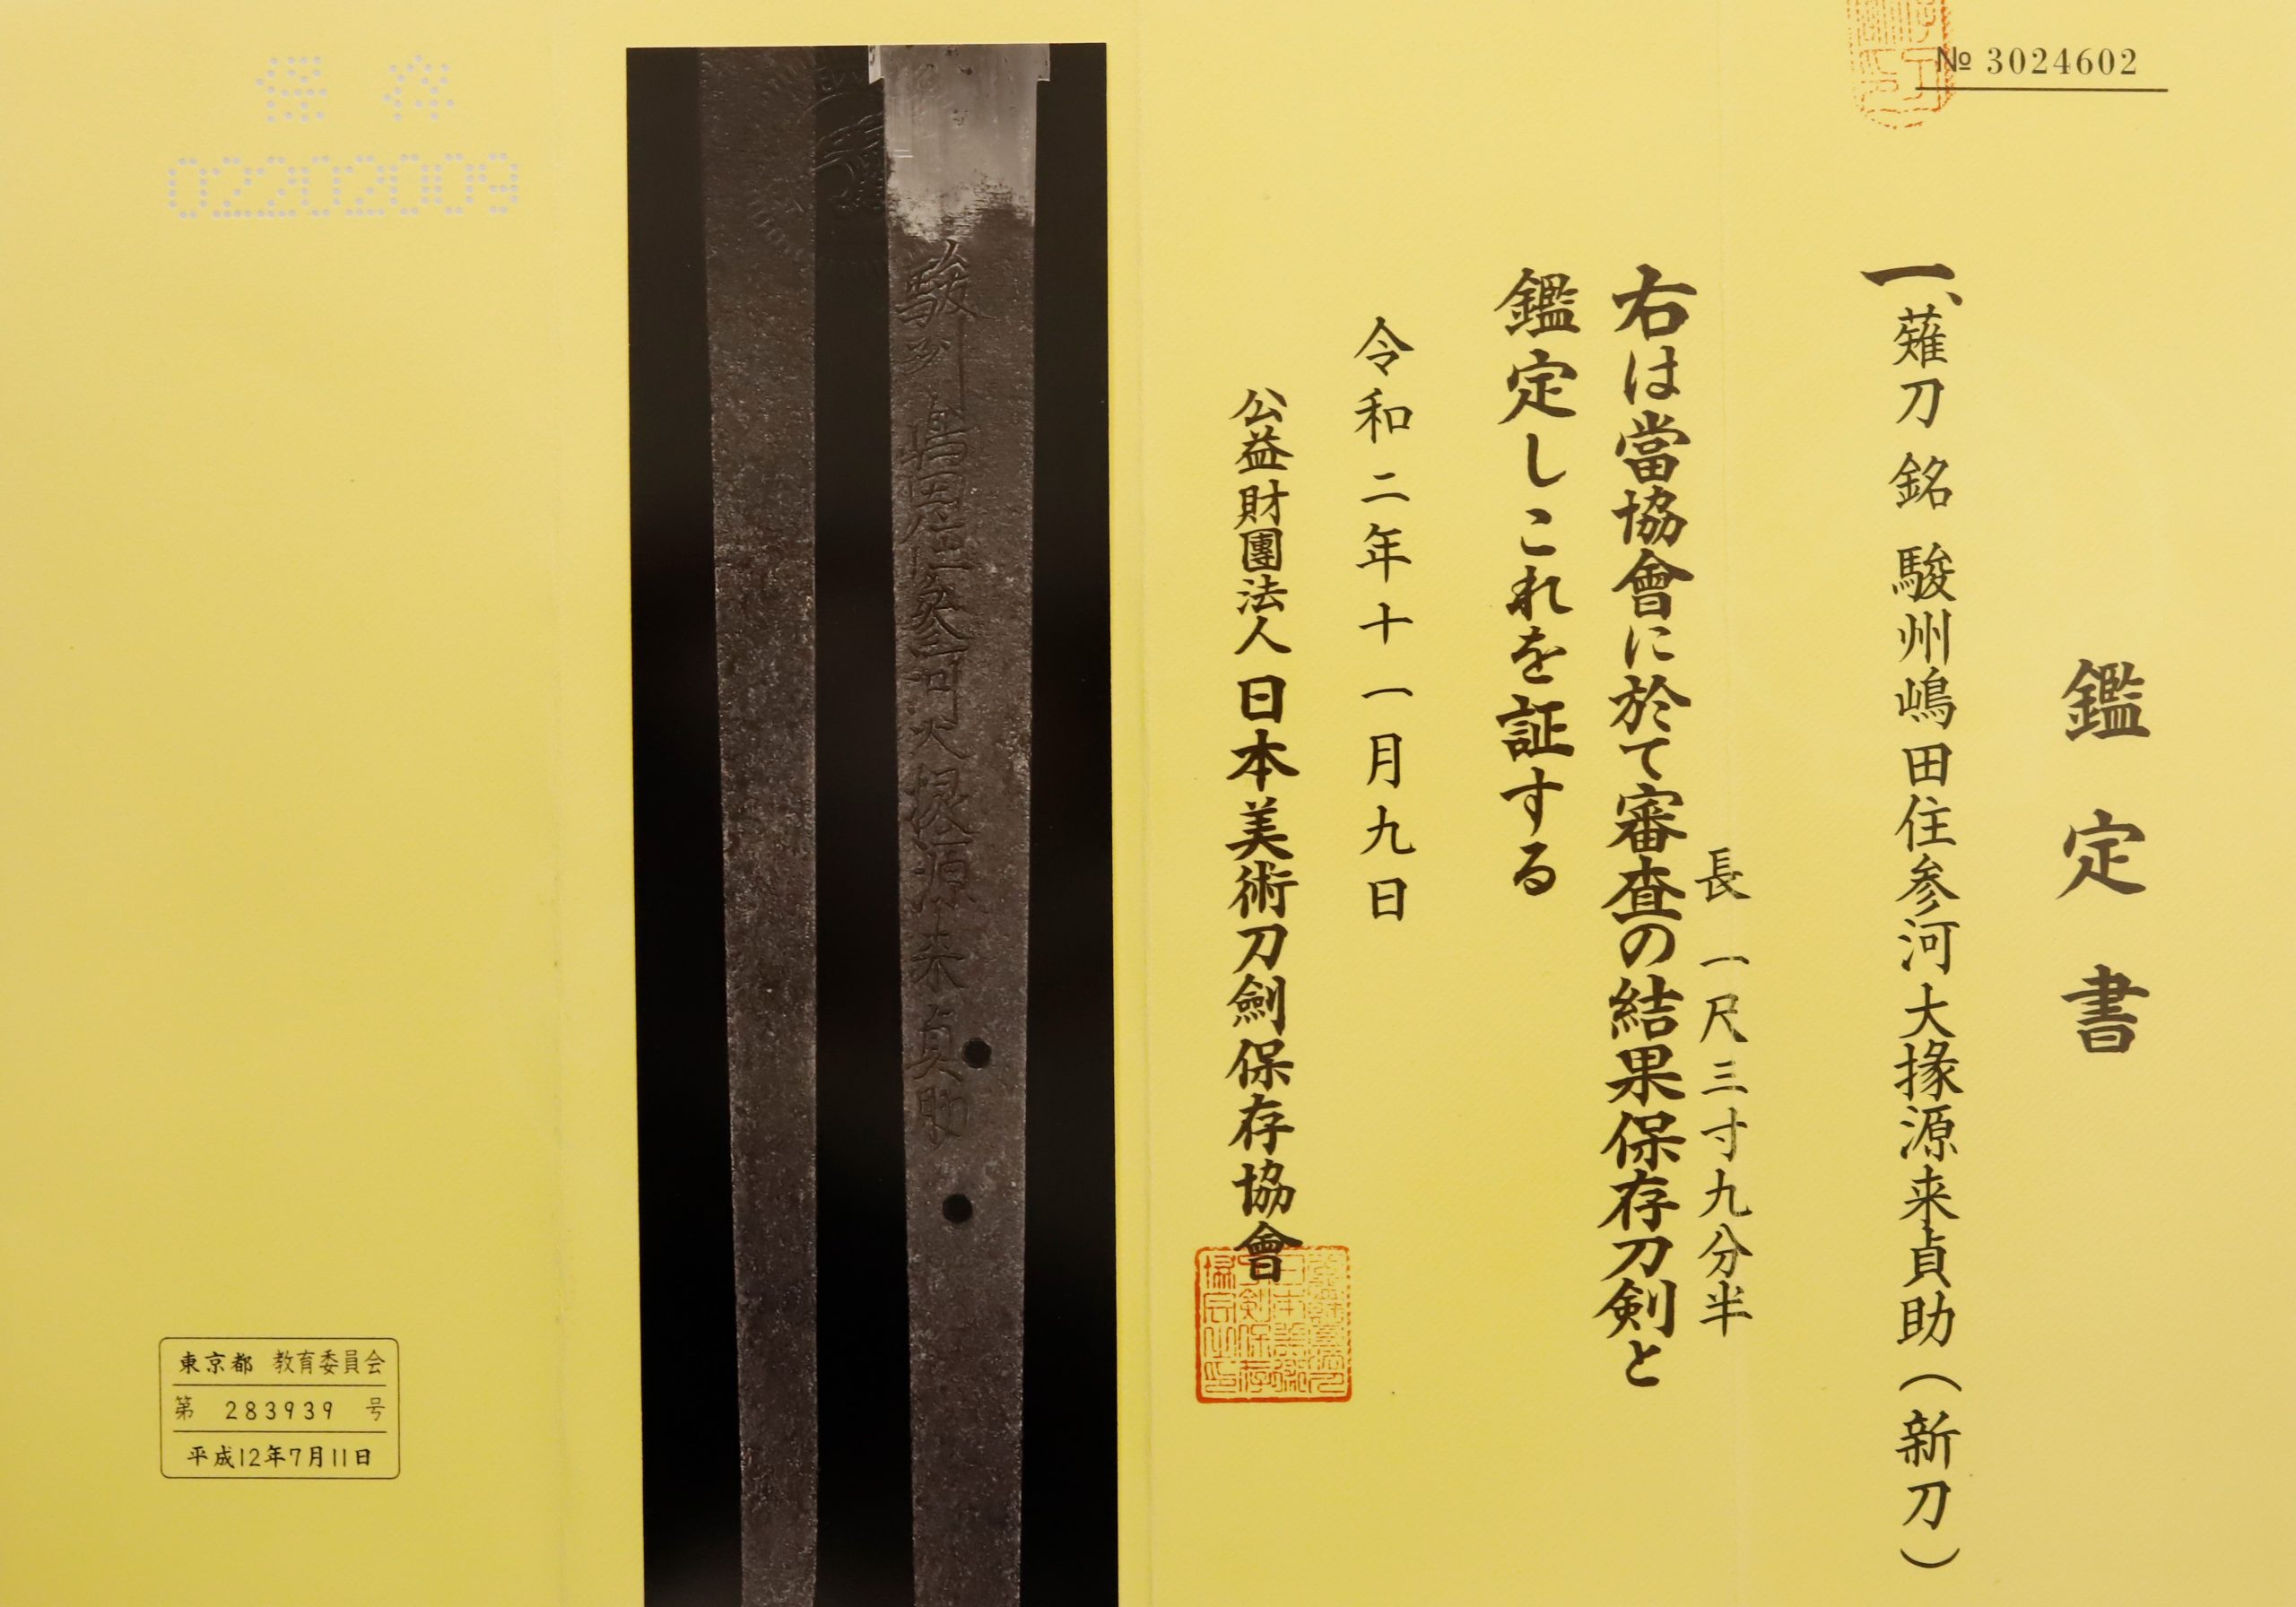 № 3024602
鑑定書
一、薙刀 銘 駿州嶋田住参河大掾源来貞助（新刀）
長 一尺三寸九分半
右は當協會に於て審査の結果保存刀剣と
鑑定しこれを証する
令和二年十一月九日
公益財團法人 日本美術刀劍保存協會
駿州嶋田住参河大掾源来貞助
保存
02202009
東京都 教育委員会
第 283939 号
平成12年7月11日